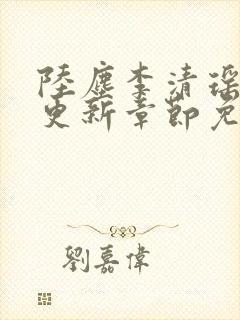 陸塵李清瑶
更新章節免
劉嘉偉